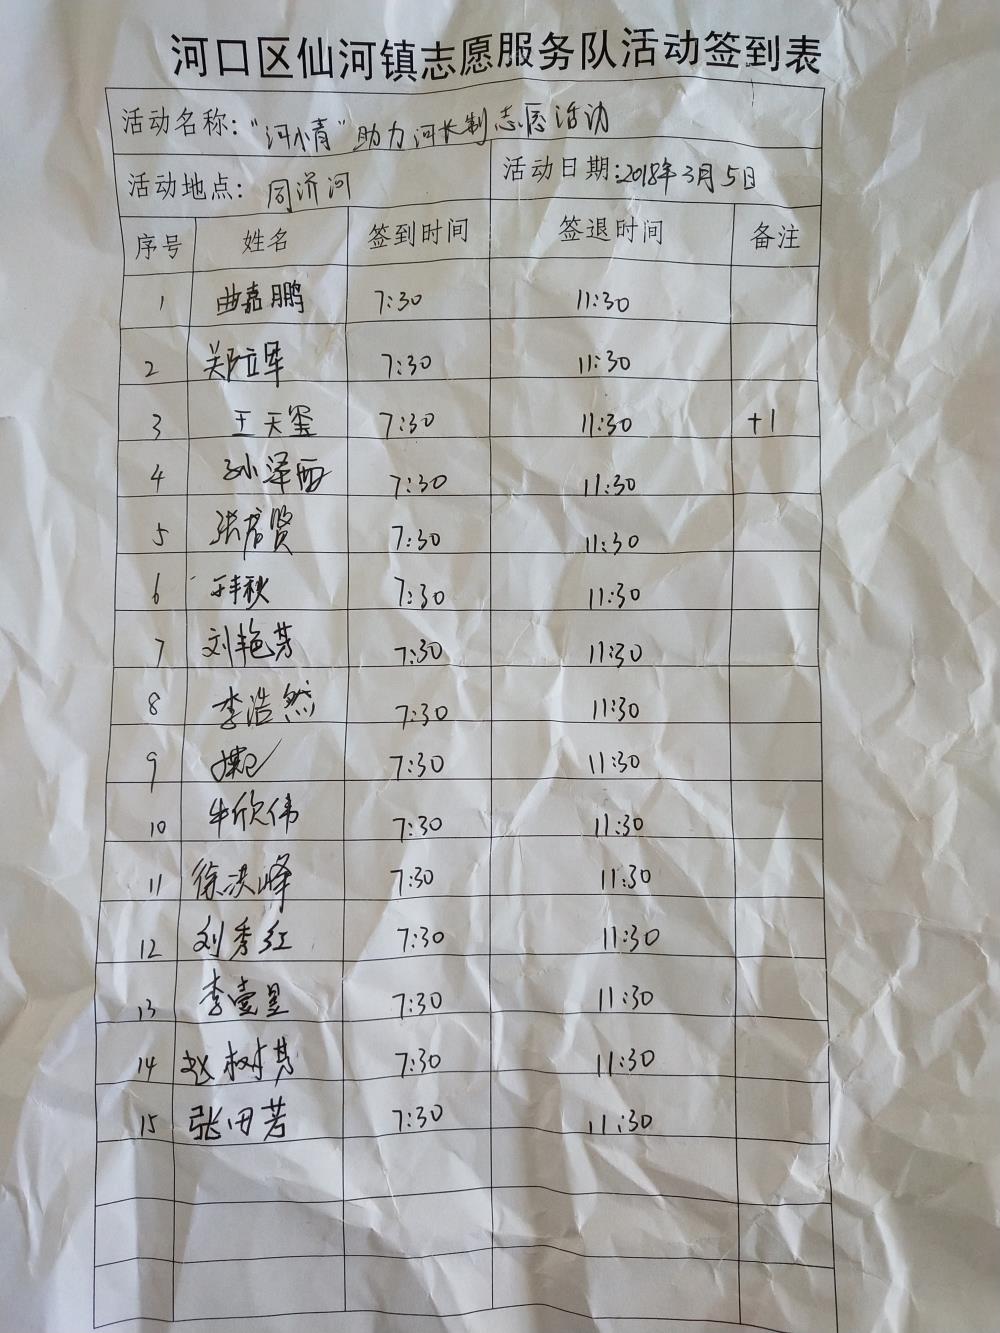 河口区仙河镇志愿服务队活动签到表
活动名称：“河小青”助力河长制志愿活动
活动地点：同济河 活动日期：2018年3月5日
序号 姓名 签到时间 签退时间 备注
1 曲嘉鹏 7:30 11:30
2 郑立军 7:30 11:30
3 王天玺 7:30 11:30 +1
4 孙泽西 7:30 11:30
5 张彦贤 7:30 11:30
6 7:30 11:30
7 刘艳芳 7:30 11:30
8 李浩然 7:30 11:30
9 7:30 11:30
10 牛欣伟 7:30 11:30
11 徐洪峰 7:30 11:30
12 刘秀红 7:30 11:30
13 李壹昱 7:30 11:30
14 赵树其 7:30 11:30
15 张田芳 7:30 11:30